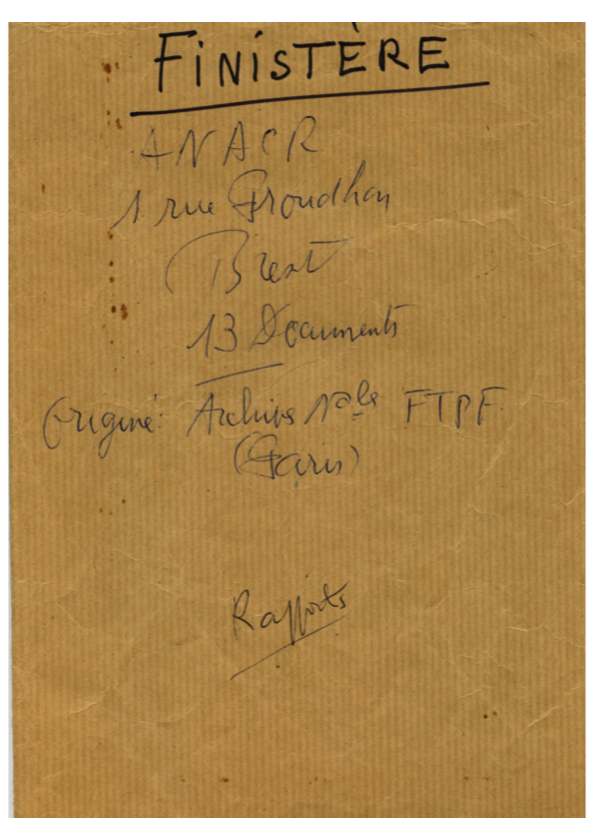 FINISTÈRE
ANACR
1 rue Proudhon
Brest
13 Documents
Origine: Archives Nales FTPF
(Paris)
Rapports